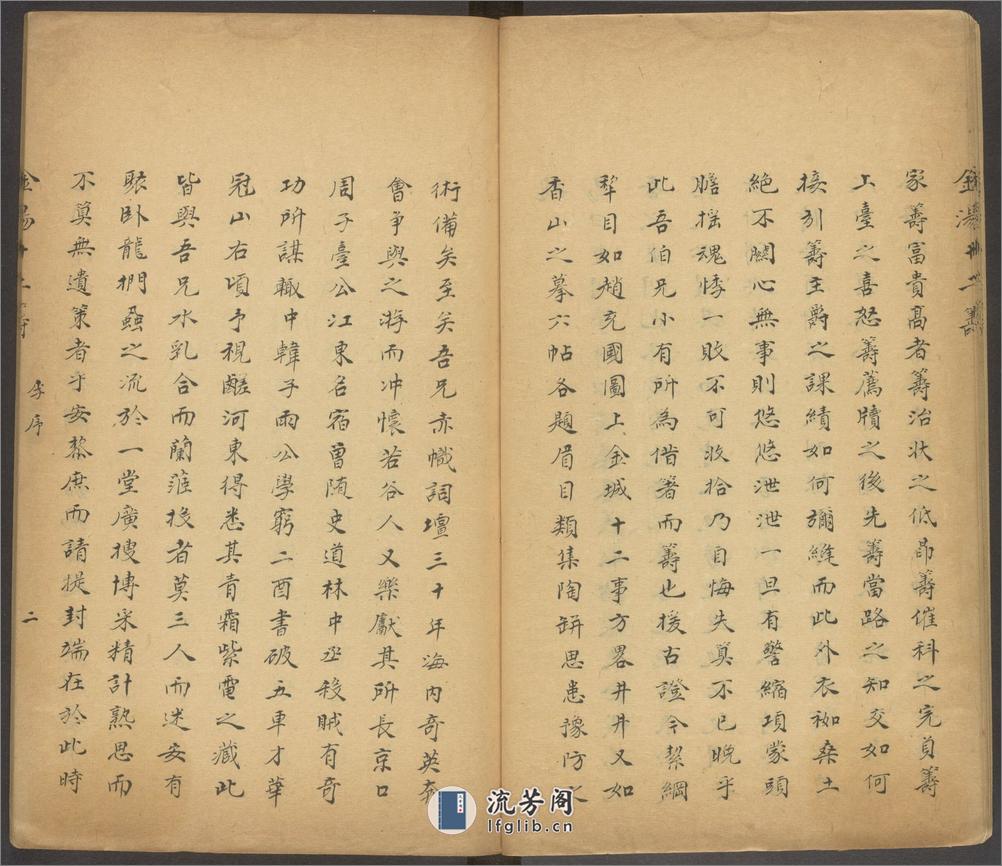 金湯十二籌
家籌富貴高者籌治狀之低昻籌催科之完負籌
上臺之喜怒籌薦牘之後先籌當路之知交如何
接引籌主爵之課績如何彌縫而此外衣袽桑土
絶不關心無事則悠悠泄泄一旦有警縮項蒙頭
膽摇魂悸一敗不可收拾乃自悔失算不已晩乎
此吾伯兄小有所為借箸而籌也援古證今絜綱
犂目如趙充國圖上金城十二事方畧井井又如
香山之摹六帖各題眉目類集陶缾思患豫防之
術備矣至矣吾兄赤幟詞壇三十年海内奇英
會爭與之游而冲懷若谷人又樂獻其所長京口
周子臺公江東名宿曽随史道林中丞殺賊有奇
功所謀輙中韓子雨公學窮二酉書破五車才華
冠山右頃予視鹺河東得悉其青霜紫電之藏此
皆與吾兄水乳合而蘭茝投者莫三人而迷安有
聚卧龍捫蝨之流於一堂廣搜博采精計熟思而
不算無遺策者乎安黎庶而請提封端在於此時
金湯十二籌
李序
二
流芳阁
lfglib.cn